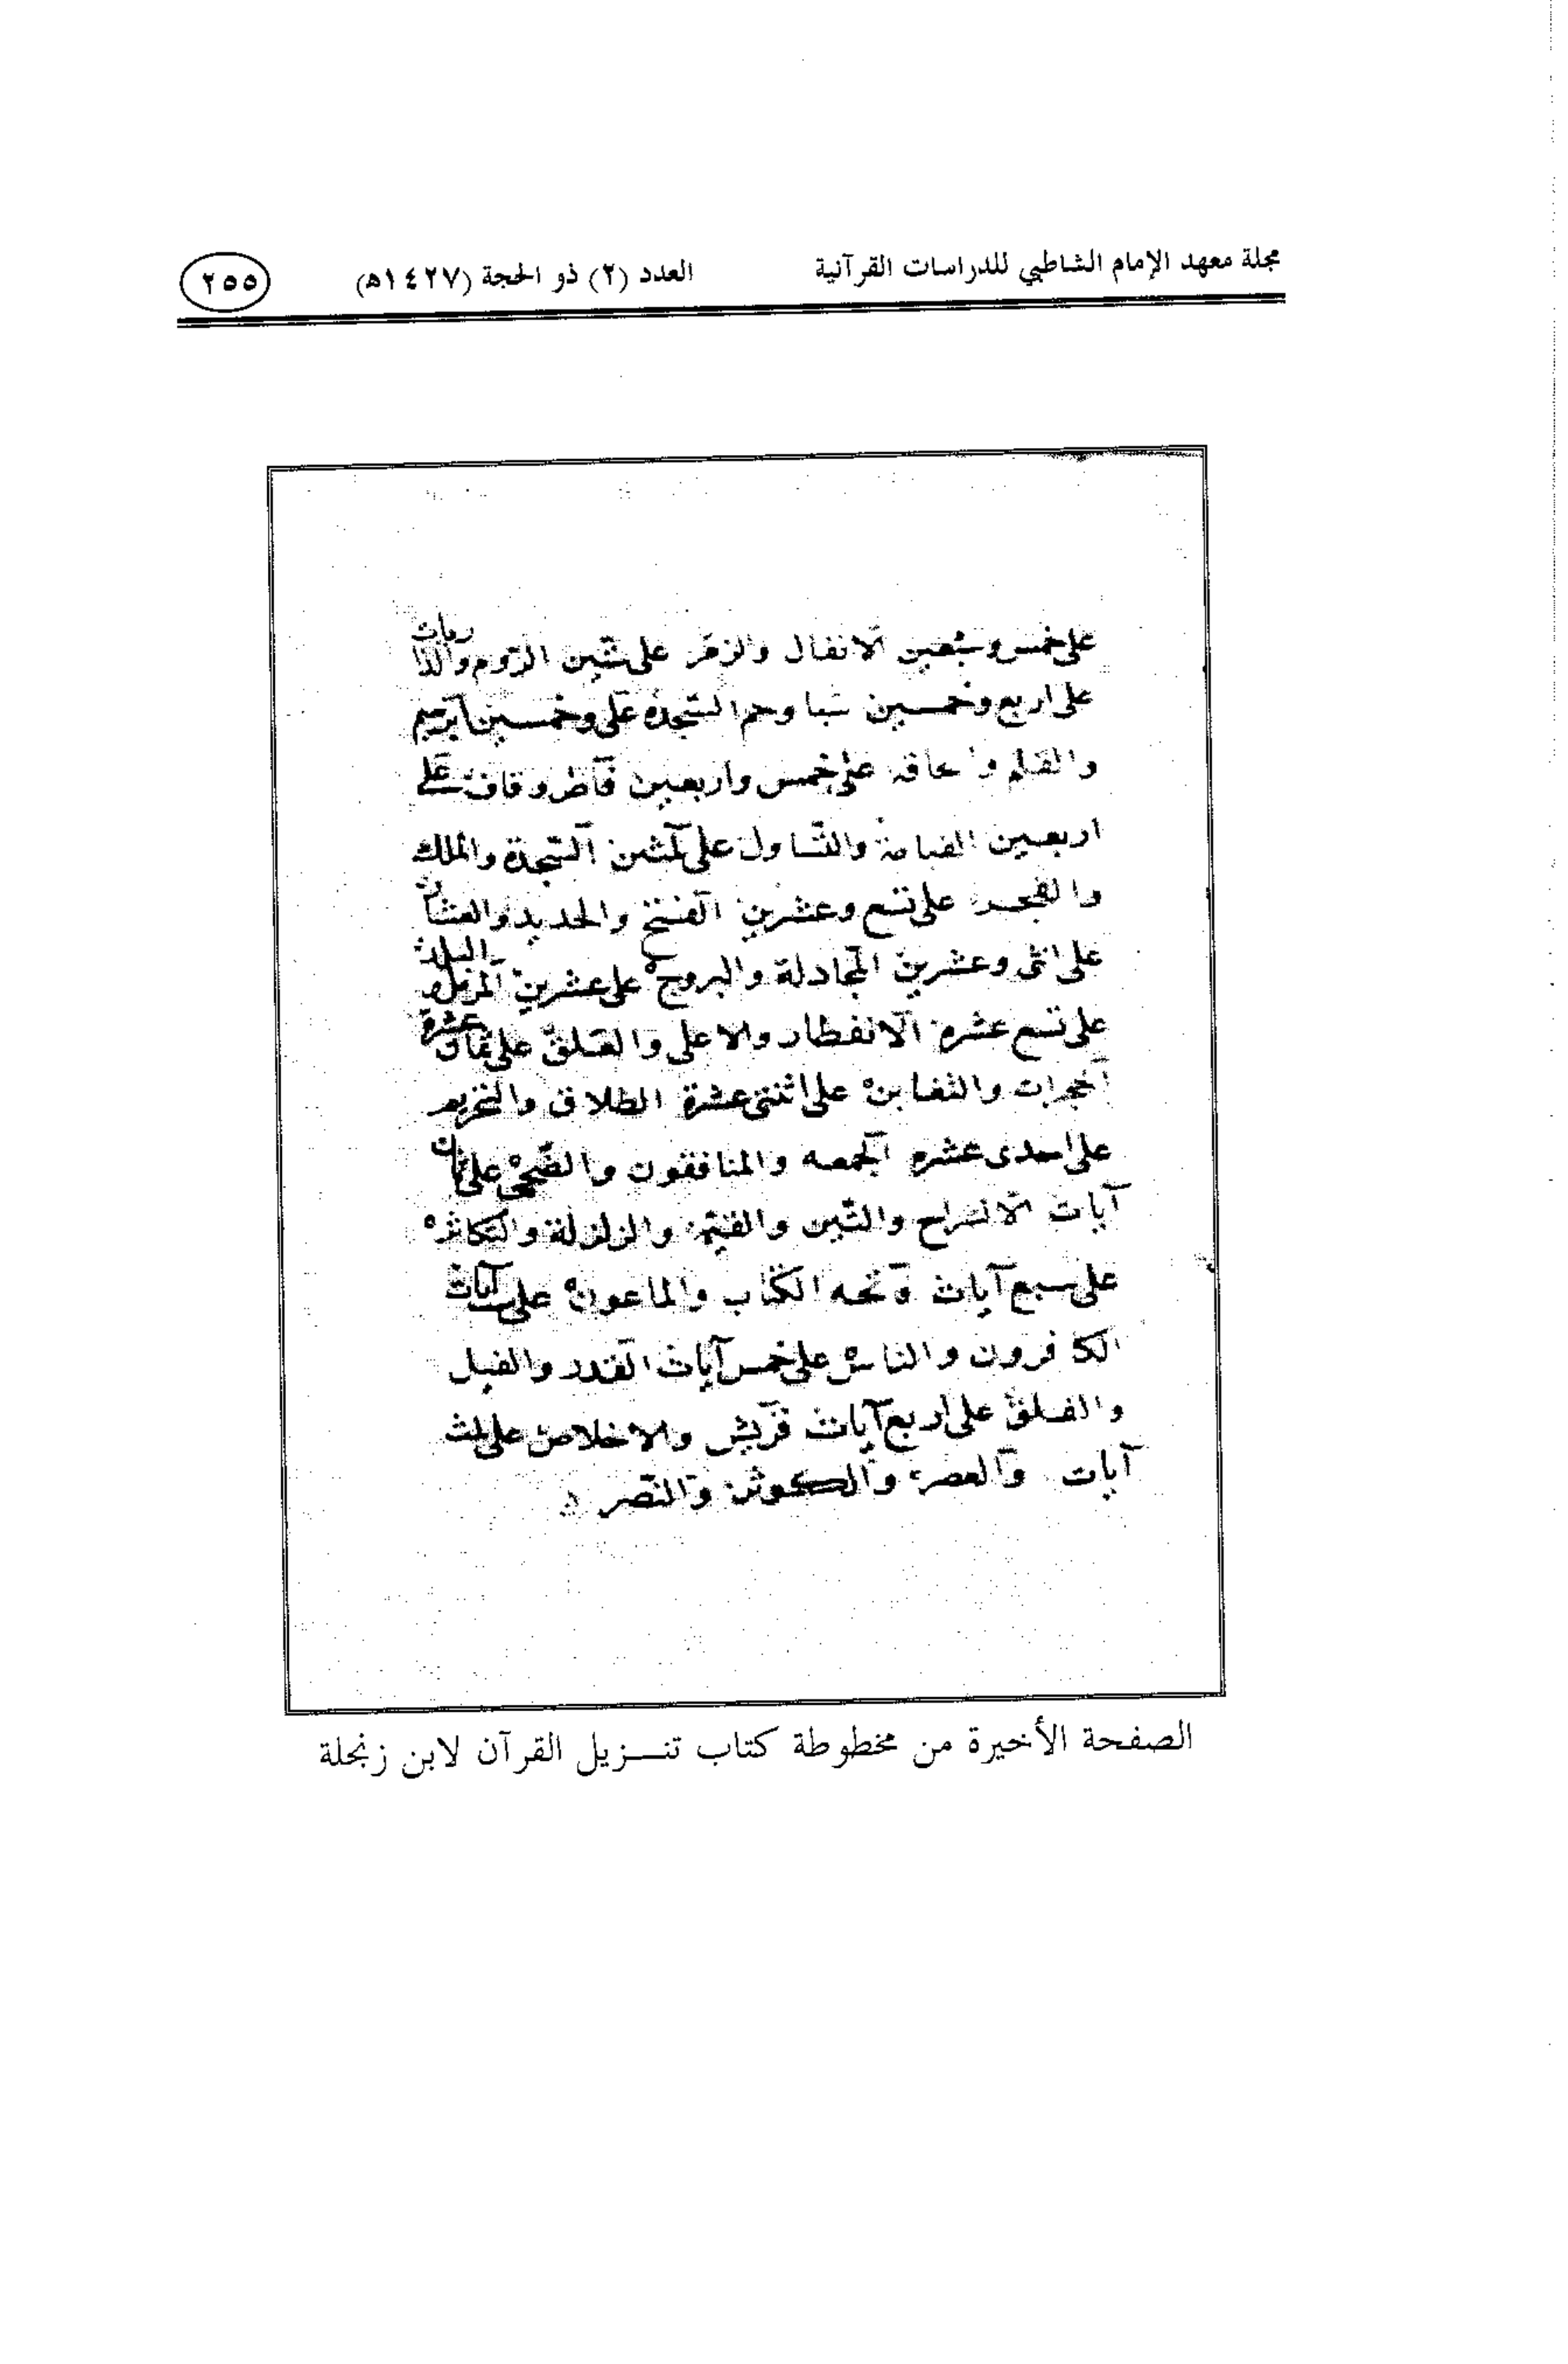 مجلة معهد الإمام الشاطبي للدراسات القرآنية العدد (٢) ذو الحجة (١٤٢٧هـ) ٢٥٥
على خمس وسبعين الانفال والزمر على ستين الروم والذاريات
على اربع وخمسين سبا وحم السجدة على وخمسين ابرهيم
والقلم والحاقه على خمس واربعين فاطر وقاف على
اربعين القيامة والتساول على ثلثين السجدة والملك
والفجر على تسع وعشرين الفتح والحديد
على اثنى وعشرين المجادلة والبروج على عشرين المزمل والبلد
على تسع عشره الانفطار والاعلى والعلق على ثمان عشرة
الحجرات والتغابن على اثنتى عشرة الطلاق والتحريم
على احدى عشره الجمعه والمنافقون والضحى على ثمان
آيات الانشراح والتين والقيمة والزلزلة والتكاثر
على سبع آيات فاتحه الكتاب والماعون على ست آيات
الكافرون والناس على خمس آيات القدر والفيل
والفلق على اربع آيات قريش والاخلاص على ثلث
آيات والعصر والكوثر والنصر
الصفحة الأخيرة من مخطوطة كتاب تنـزيل القرآن لابن زنجلة